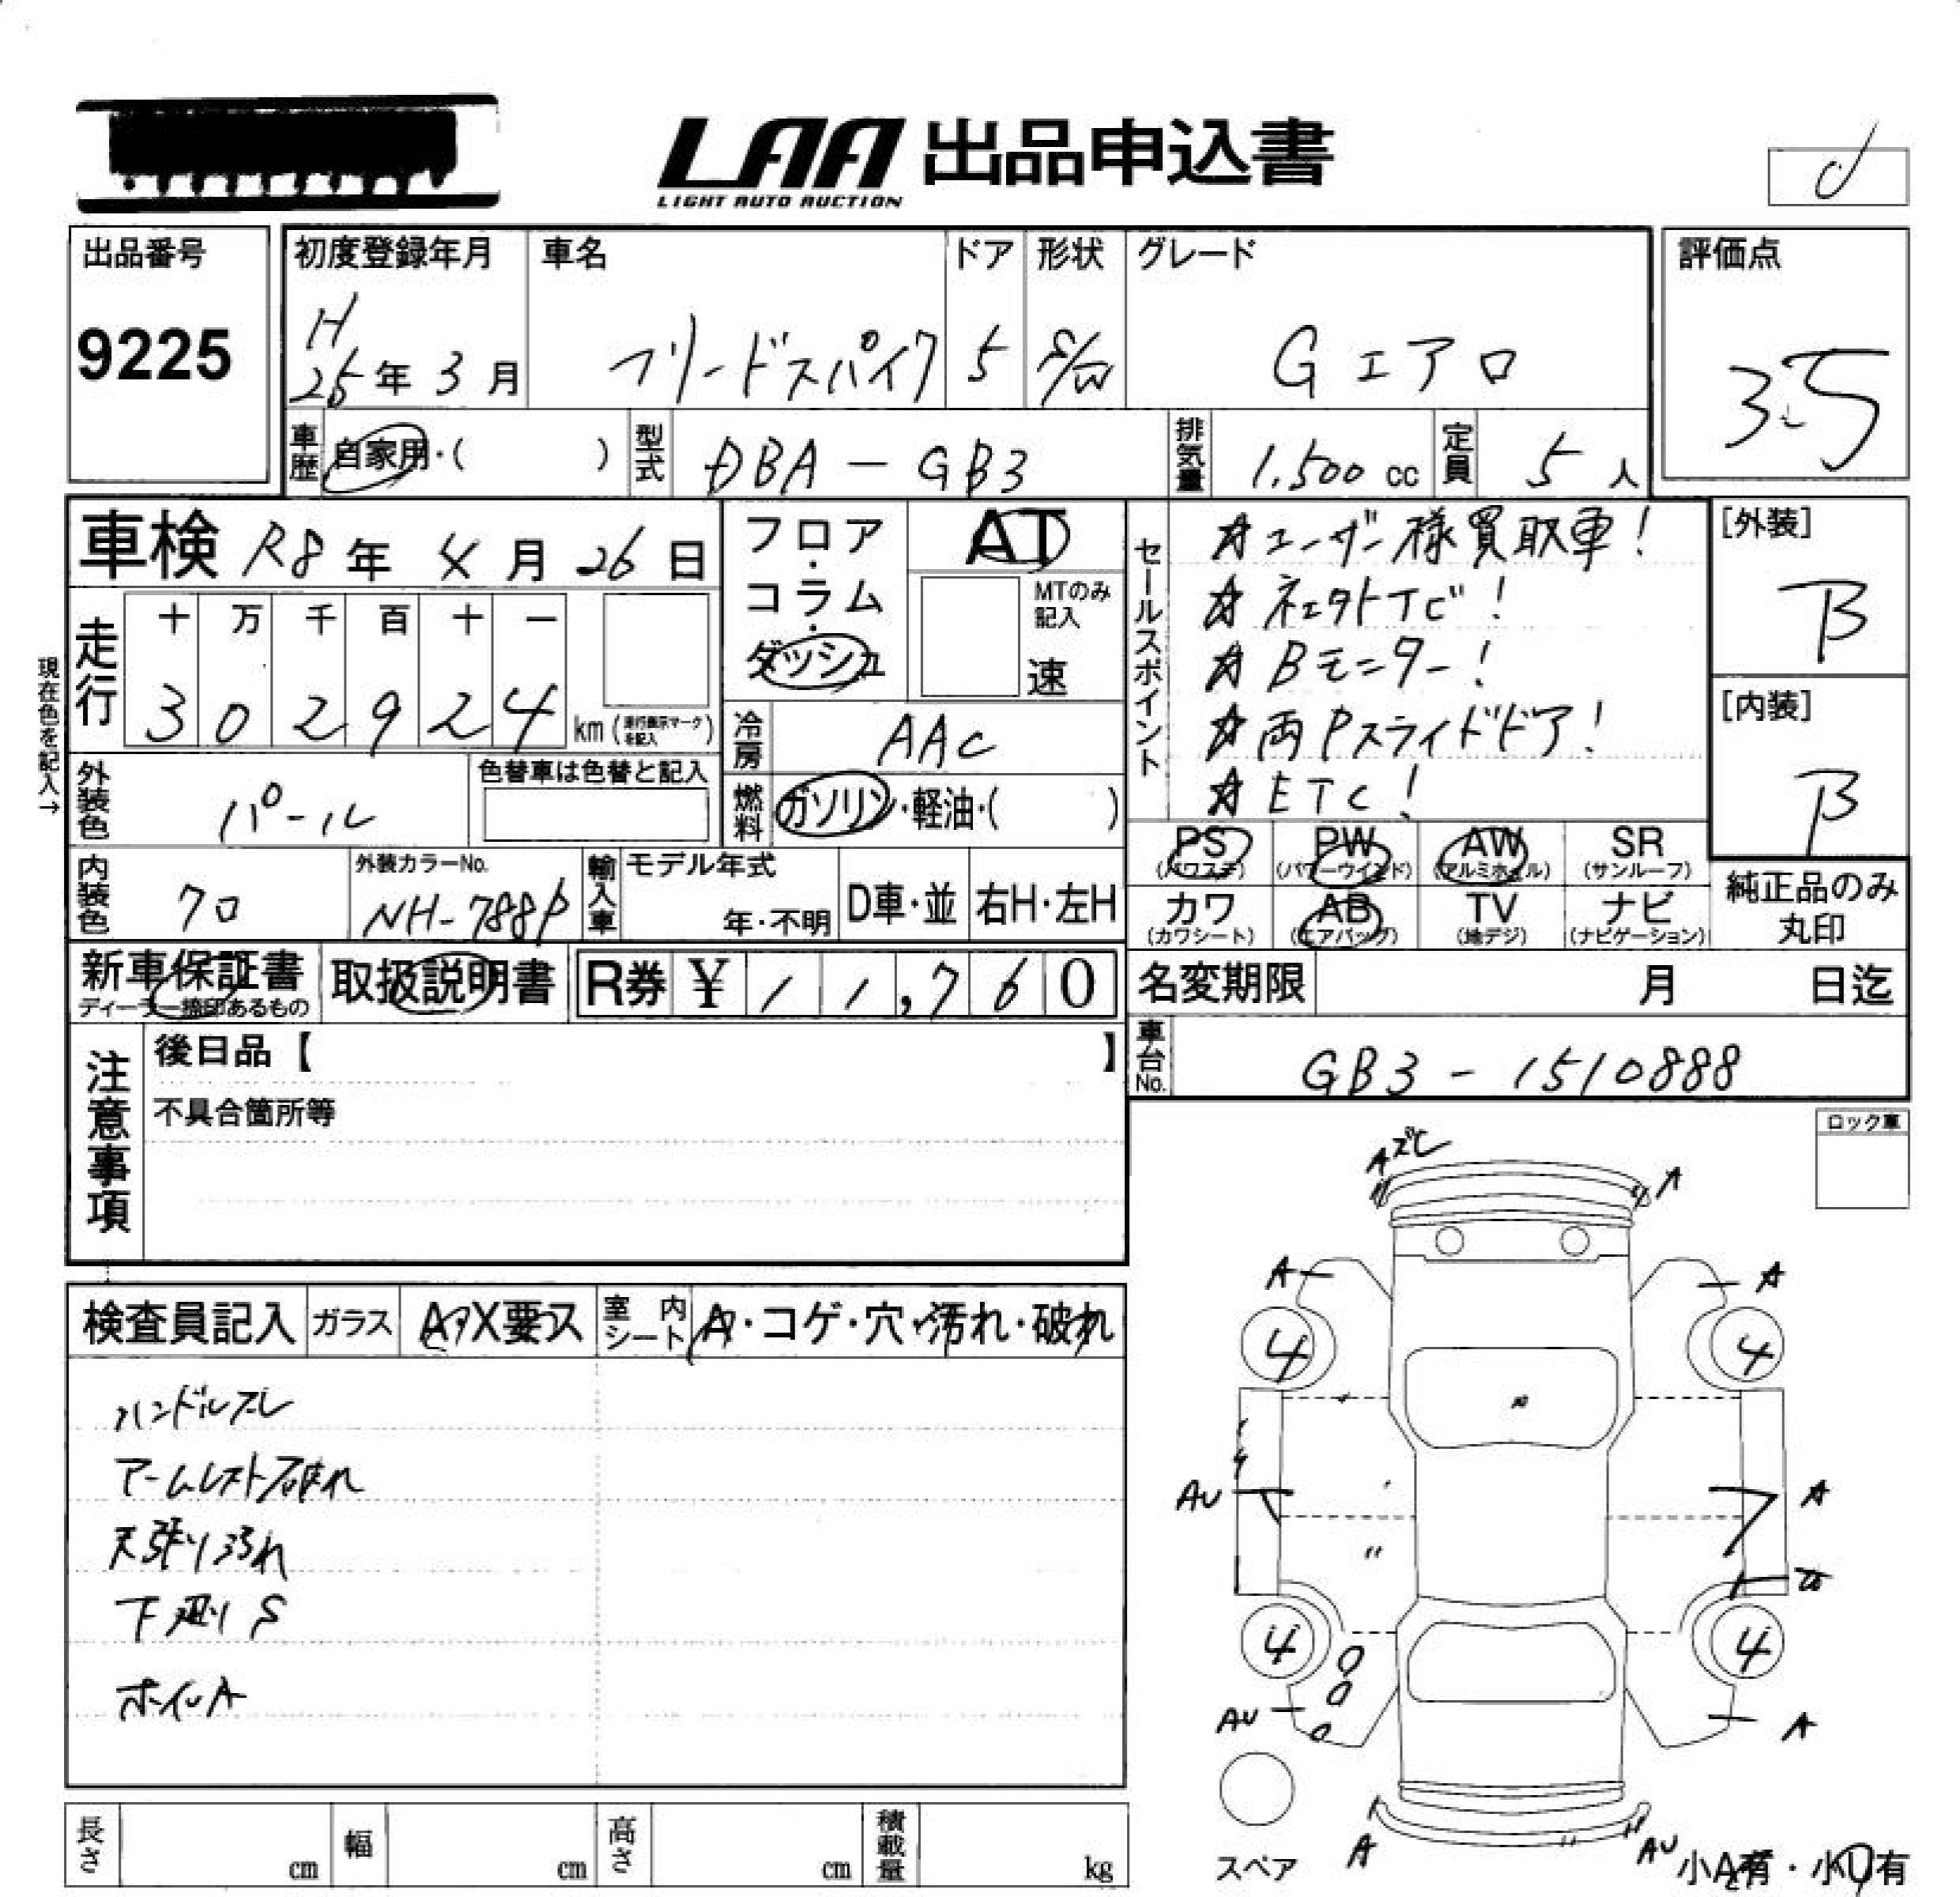 LAA 出品申込書
LIGHT AUTO AUCTION
出品番号
9225
初度登録年月
H
25年 3月
車名
フリードスパイク
ドア
5
形状
S/W
グレード
Gエアロ
評価点
3.5
車歴
自家用・( )
型式
DBA-GB3
排気量
1,500 cc
定員
5人
車検 R8年 4月 26日
走行
十 万 千 百 十 一
3 0 2 9 2 4
km (走行表示マークを記入)
現在色を記入→
フロア・コラム・ダッシュ
AT
MTのみ記入
速
冷房
AAC
燃料
ガソリン・軽油・( )
外装色
パール
色替車は色替と記入
内装色
クロ
外装カラーNo.
NH-788P
輸入車
モデル年式
年・不明
D車・並
右H・左H
セールスポイント
☆ユーザー様買取車!
☆Bモニター!
☆両Pスライドドア!
☆ETC!
PS (パワステ)
PW (パワーウインド)
AW (アルミホイル)
SR (サンルーフ)
カワ (カワシート)
AB (エアバッグ)
TV (地デジ)
ナビ (ナビゲーション)
[外装]
B
[内装]
B
純正品のみ
丸印
新車保証書
ディーラー捺印あるもの
取扱説明書
R券 ¥ 11,760
名変期限 月 日迄
車台No.
GB3-1510888
注意事項
後日品【 】
不具合箇所等
ロック車
検査員記入
ガラス
A・X要ス
室内シート
A・コゲ・穴・汚れ・破れ
ハンドルスレ
アームレスト破れ
天張り汚れ
下廻りS
ホイルA
Aズレ
A
A
A
4
4
AU
A
4
4
AU
A
A
AU
スペア
小A有・小U有
長さ cm
幅 cm
高さ cm
積載量 kg